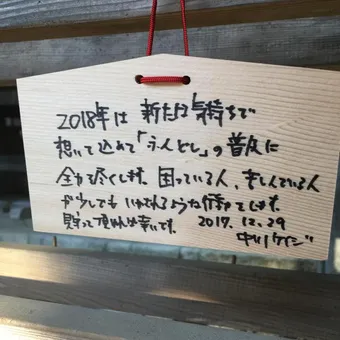 2018年は 新たな気持ちで
想いを込めて「うんとし」の普及に
全力で尽くします。困っている人、苦しんでいる人
が少しでも いやされるような行動をします。
見守って頂ければ幸いです。 2017.12.29
中川ケイジ